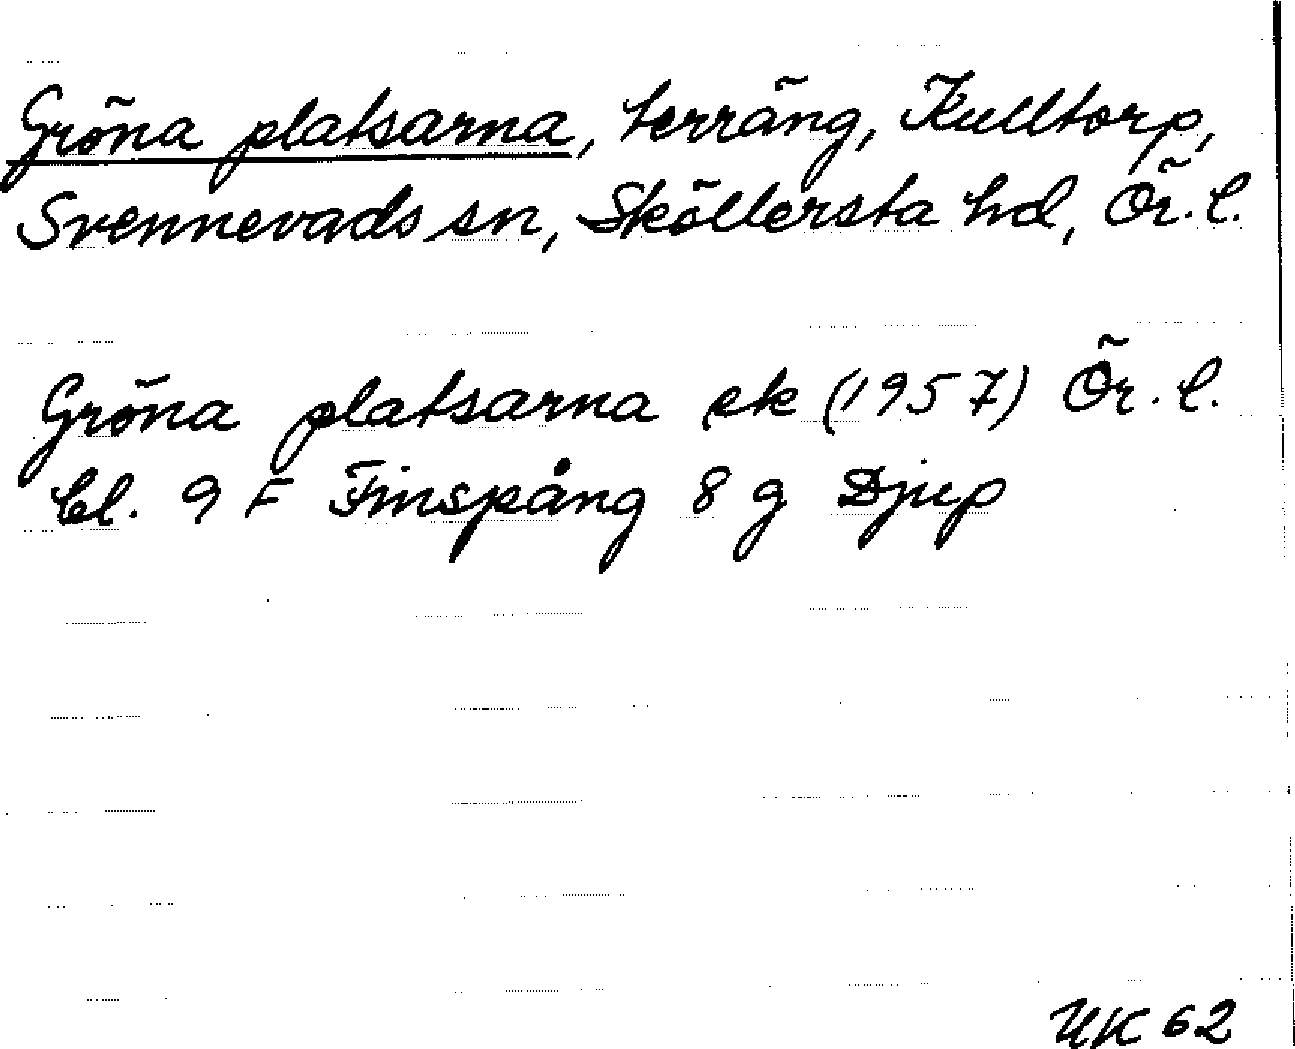 Gröna platsarna, terräng, Kulltorp,
Svennevads sn, Sköllersta hd, Ör. l.
Gröna platsarna ek (1957) Ör. l.
bl. 9 F Finspång 8 g Djup
UK 62